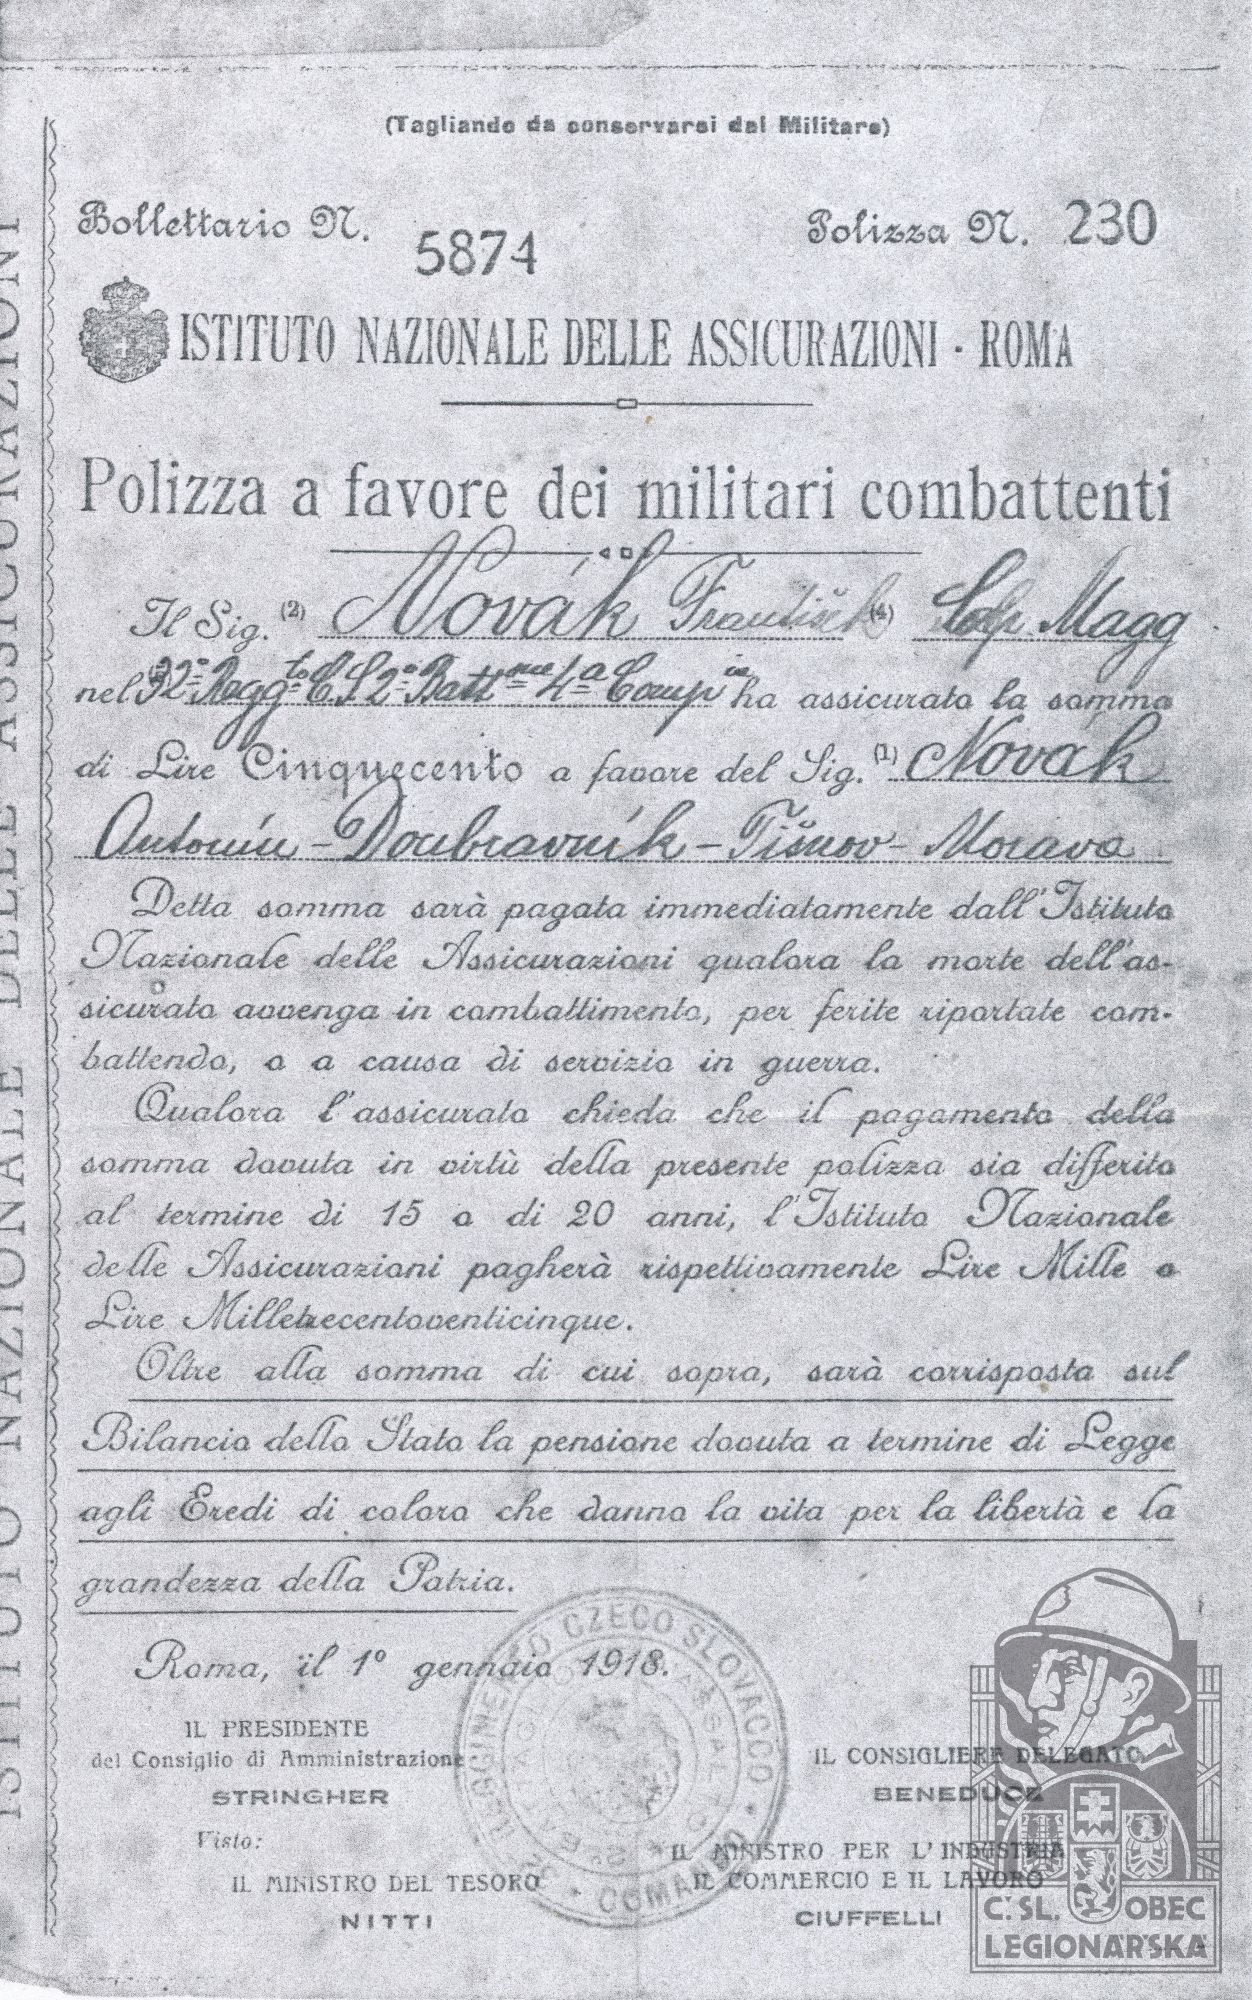 (Tagliando da conservarsi dal Militare)
Bollettario N. 5874 Polizza N. 230
ISTITUTO NAZIONALE DELLE ASSICURAZIONI - ROMA
Polizza a favore dei militari combattenti
Il Sig. (2) Novák František (4) Magg
nel 32º Regg.to C.S 2º Batt 4ª Comp ha assicurato la somma
di Lire Cinquecento a favore del Sig. (1) Novák
Antonín - Doubravník - Tišnov - Morava
Detta somma sarà pagata immediatamente dall'Istituto
Nazionale delle Assicurazioni qualora la morte dell'as-
sicurato avvenga in combattimento, per ferite riportate com-
battendo, o a causa di servizio in guerra.
Qualora l'assicurato chieda che il pagamento della
somma dovuta in virtù della presente polizza sia differito
al termine di 15 o di 20 anni, l'Istituto Nazionale
delle Assicurazioni pagherà rispettivamente Lire Mille o
Lire Milletrecentoventicinque.
Oltre alla somma di cui sopra, sarà corrisposta sul
Bilancio dello Stato la pensione dovuta a termine di Legge
agli Eredi di coloro che danno la vita per la libertà e la
grandezza della Patria.
Roma, il 1º gennaio 1918.
IL PRESIDENTE
del Consiglio di Amministrazione
STRINGHER
IL CONSIGLIERE DELEGATO
BENEDUCE
Visto:
IL MINISTRO DEL TESORO
NITTI
IL MINISTRO PER L'INDUSTRIA
IL COMMERCIO E IL LAVORO
CIUFFELLI
CZECO SLOVACCO
COMANDO
ISTITUTO NAZIONALE DELLE ASSICURAZIONI
Č.SL. OBEC
LEGIONÁŘSKÁ